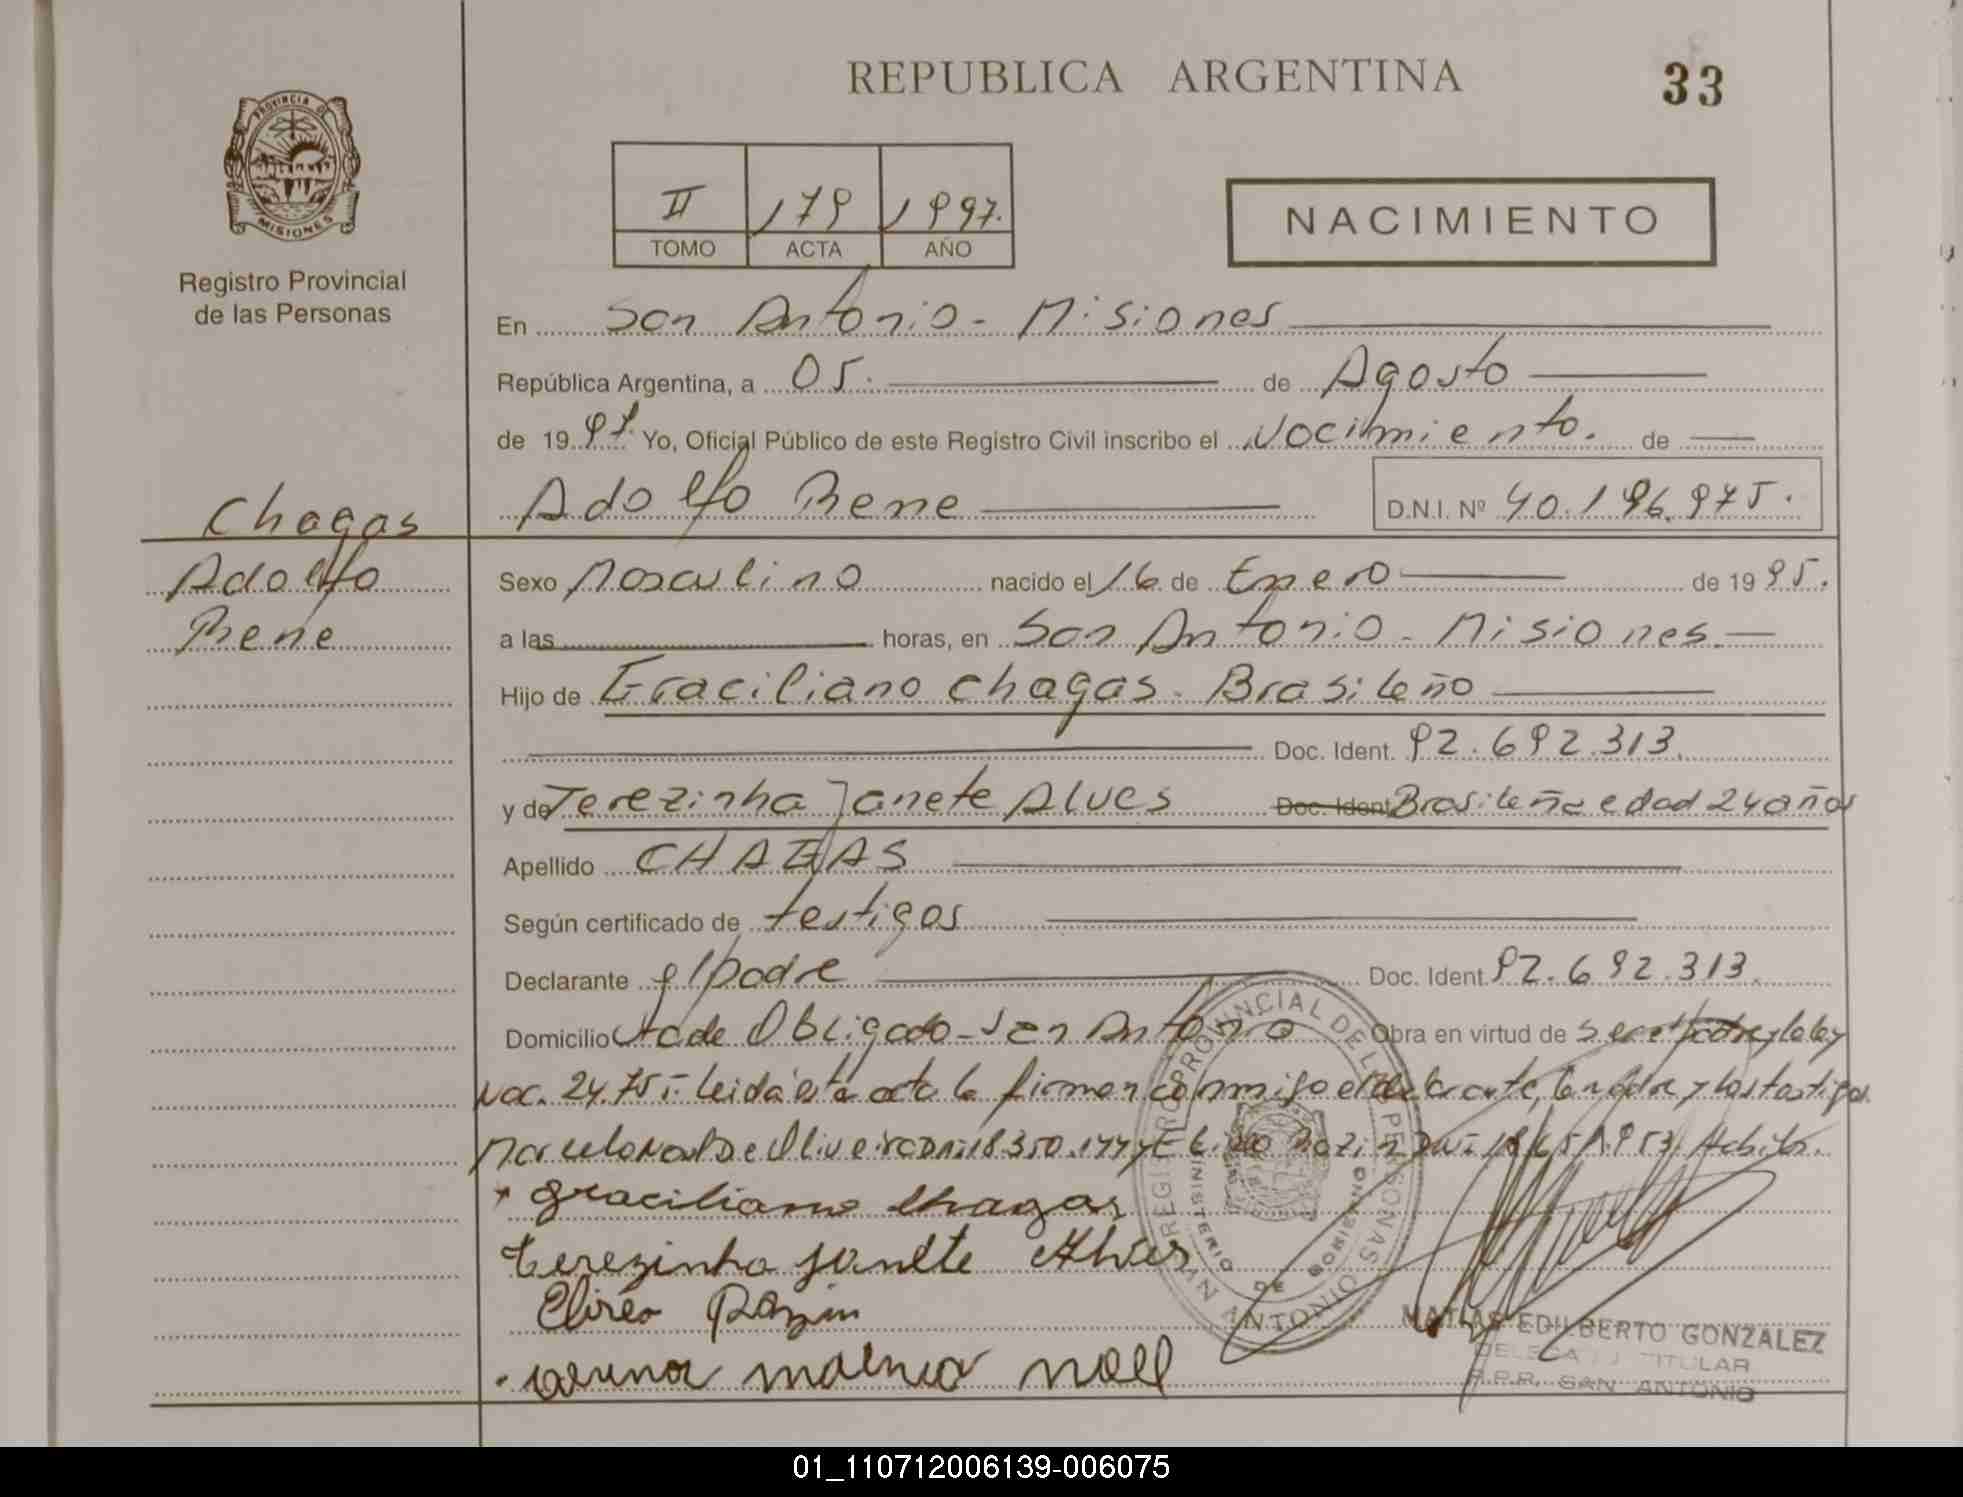 REPUBLICA ARGENTINA
33
PROVINCIA DE
MISIONES
Registro Provincial
de las Personas
II 179 1997.
TOMO ACTA AÑO
NACIMIENTO
En San Antonio - Misiones
República Argentina, a 05. de Agosto
de 1997. Yo, Oficial Público de este Registro Civil inscribo el Nacimiento. de
Chagas
Adolfo Rene
D.N.I. Nº 40.196.975.
Adolfo
Rene
Sexo Masculino nacido el 16 de Enero de 1995.
a las horas, en San Antonio - Misiones.
Hijo de Graciliano Chagas. Brasileño
Doc. Ident. 92.692.313.
y de Terezinha Janete Alves Doc. Ident Brasileña edad 24 años
Apellido CHAGAS
Según certificado de testigos
Declarante el padre Doc. Ident 92.692.313.
Domicilio Obligado - San Antonio Obra en virtud de ley
Nac. 24.755. Leida esta acta la firman conmigo el declarante, la madre y los testigos
Marcelo De Oliveira DNI 18.350. Razin
Graciliano Chagas
Terezinha Janete Alves
Razin
REGISTRO PROVINCIAL DE LAS PERSONAS
MINISTERIO DE GOBIERNO
SAN ANTONIO
MATIAS EDILBERTO GONZALEZ
DELEGADO TITULAR
R.P.P. SAN ANTONIO
01_110712006139-006075